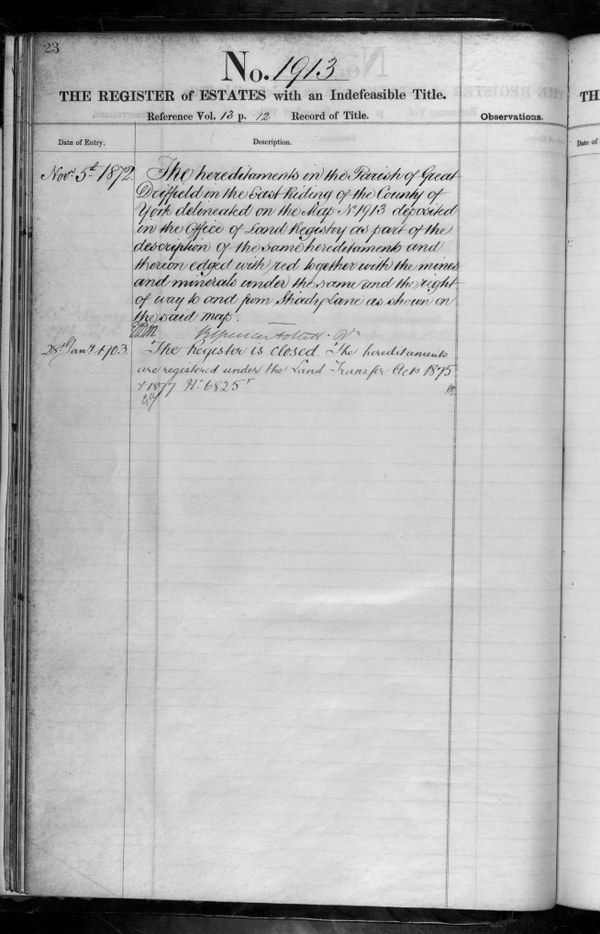 23
No. 1913
THE REGISTER of ESTATES with an Indefeasible Title.
Reference Vol. 13 p. 12 Record of Title.
Observations.
Date of Entry.
Description.
Novr. 5th 1872
The hereditaments in the Parish of Great
Driffield in the East Riding of the County of
York delineated on the Map No 1913 deposited
in the Office of Land Registry as part of the
description of the same hereditaments and
thereon edged with red together with the mines
and minerals under the same and the right
of way to and from Shady Lane as shown on
the said map.
28th Jany 1903.
The Register is closed. The hereditaments
are registered under the Land Transfer Acts 1875
& 1897 No. 6825
TH
Date of